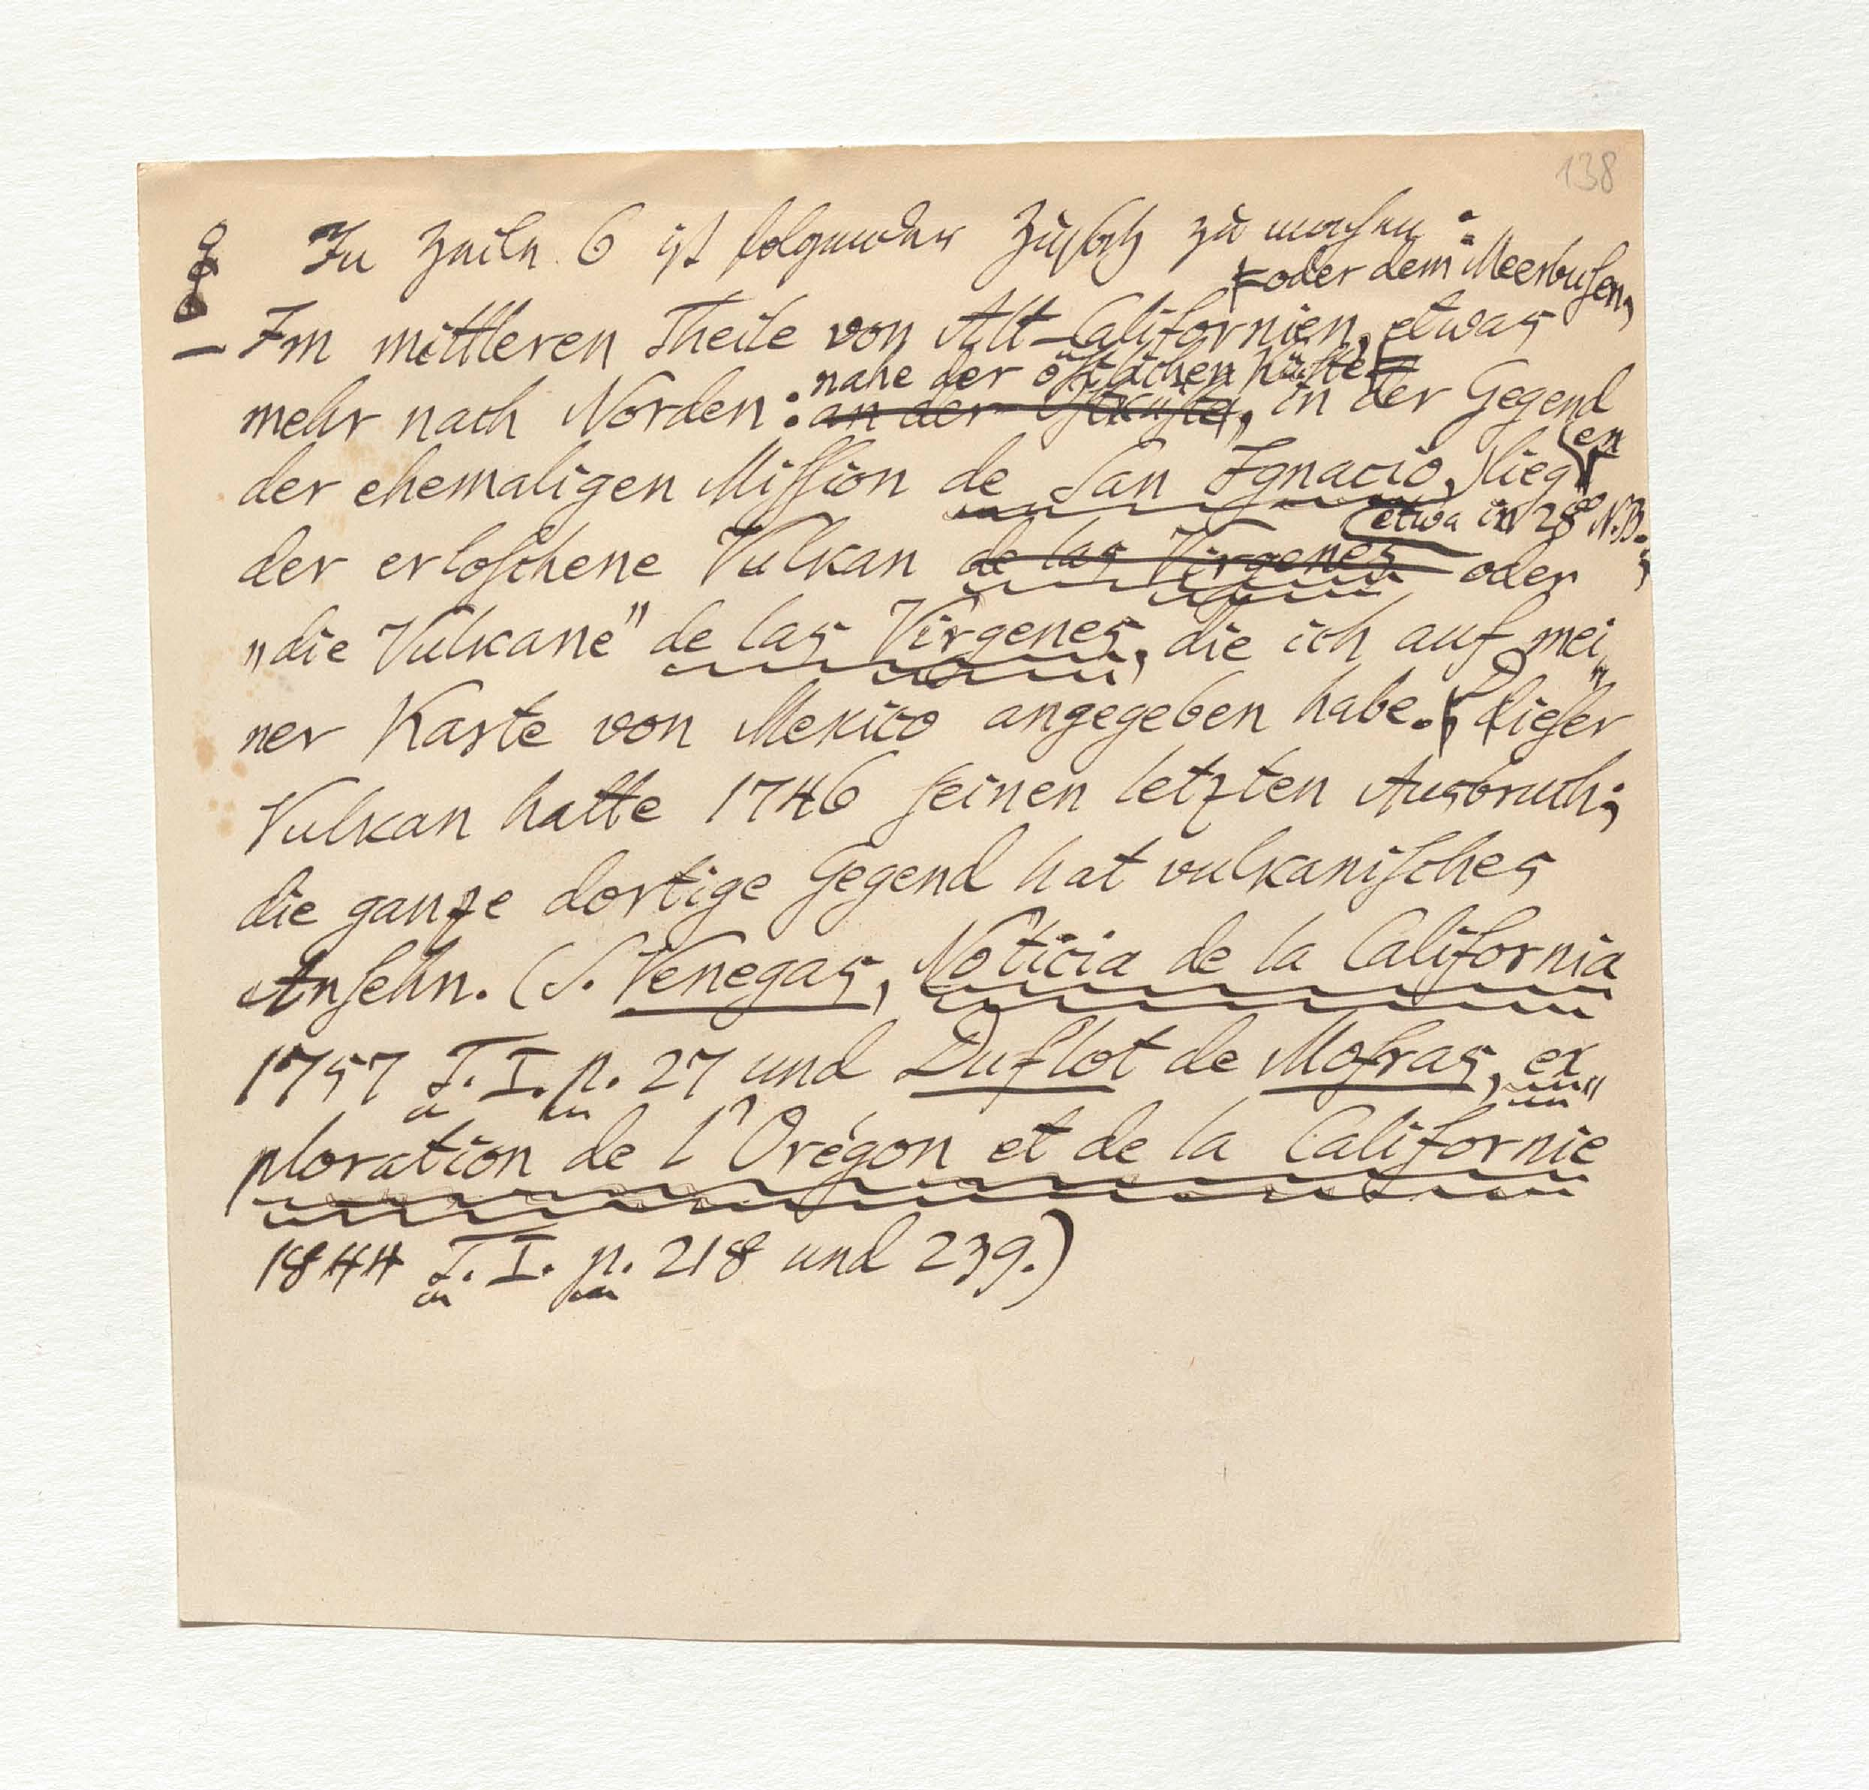 138
In Zeile 6 ist folgender Zusatz zu machen:
oder dem Meerbusen,
– Im mittleren Theile von Alt-Californien, etwas
nahe der östlichen Küste
mehr nach Norden: an der Ostküste, in der Gegend
en
der ehemaligen Mission de San Ignacio, lieg
(etwa in 28° N.B.;
der erloschene Vulkan de las Virgenes oder
„die Vulkane" de las Virgenes, die ich auf mei„
ner Karte von Mexico angegeben habe. Dieser
Vulkan hatte 1746 seinen letzten Ausbruch;
die ganze dortige Gegend hat vulkanisches
Ansehn. (S. Venegas, Noticia de la California
1757 T. I. p. 27 und Duflot de Mofras, ex„
ploration de l'Orégon et de la Californie
1844 T. I. p. 218 und 239.)